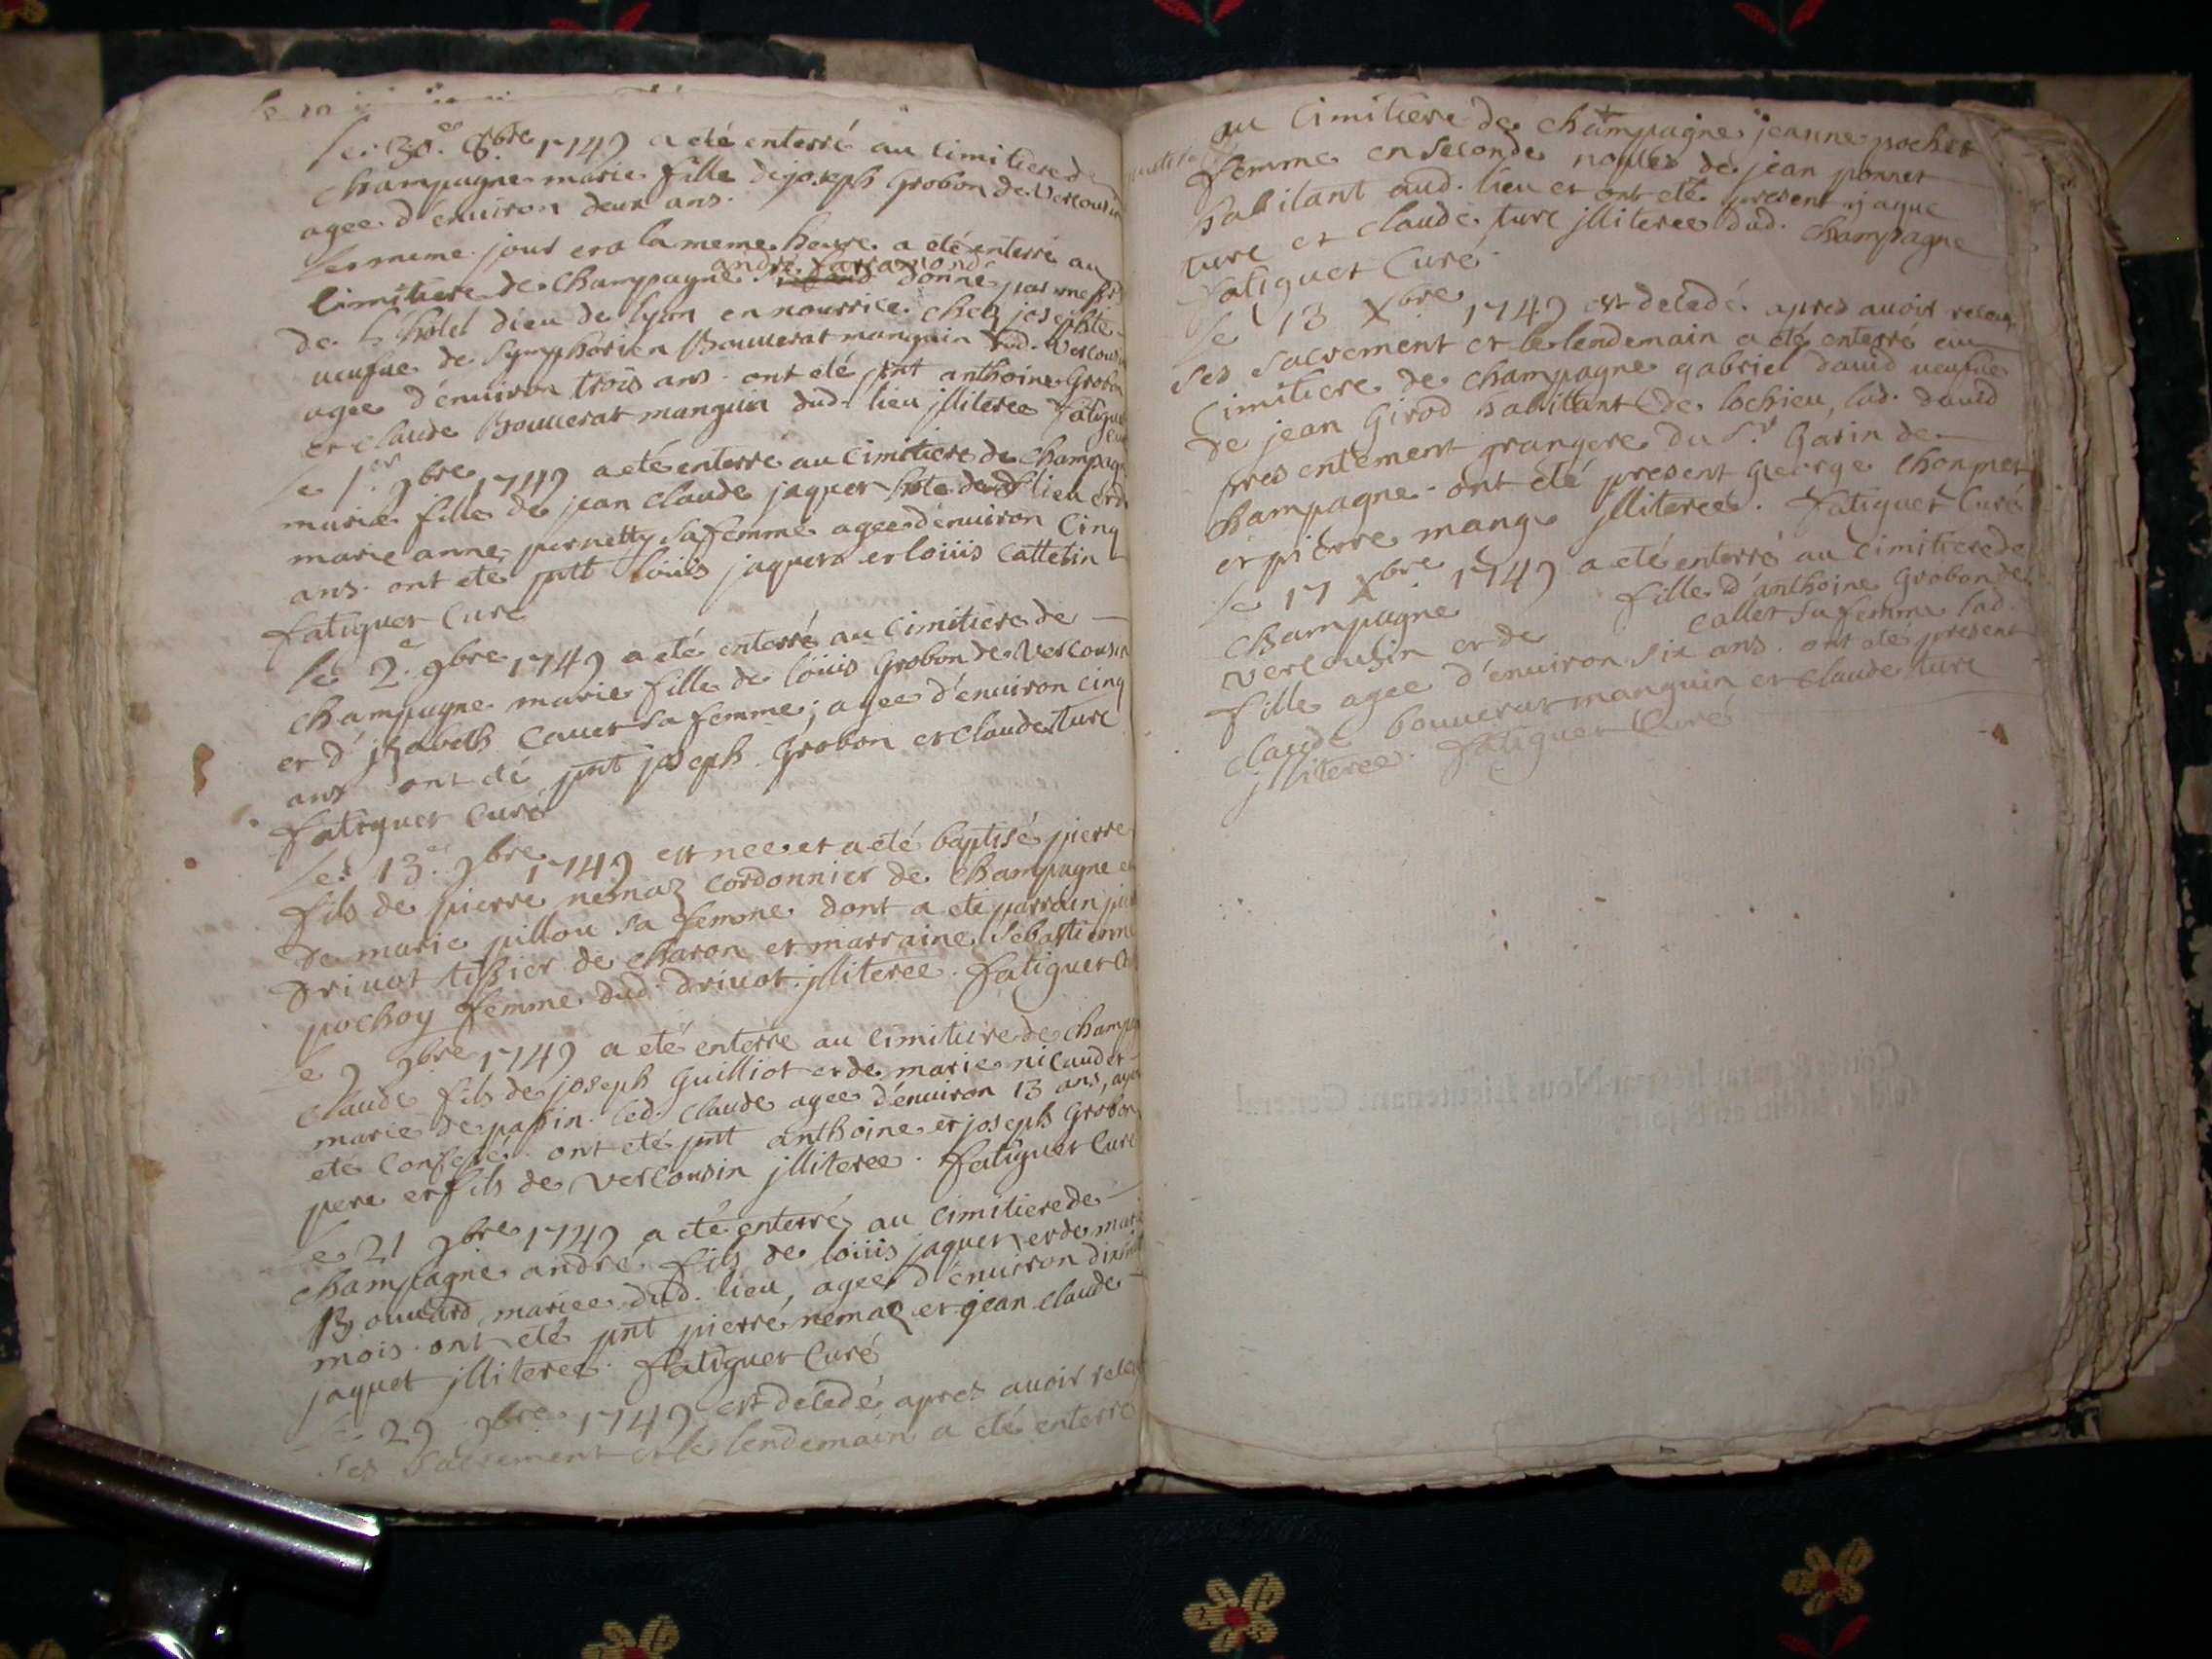 le 30.e 8bre 1749 a eté enterré au cimitiere de
champagne marie fille de joseph Grobon de vercousin
agee d'enuiron deux ans.
le meme jour et a la meme heure a eté enterré au
andré farramond
cimitiere de champagne donné par mesrs
de l'hotel dieu de lyon en nourrice chez josephte
ueufue de symphorien Bouuerat manguin dud. vercousin
agee d'enuiron trois ans. ont eté pnt anthoine Grobon
et claude Bouuerat manguin dud. lieu jlliteree fatiguet
curé
le 1.er 9bre 1749 a eté enterré au cimitiere de champagne
marie fille de jean claude jaquet hote dud lieu et de
marie anne pernetty sa femme agee d'enuiron cinq
ans. ont eté pnt loüis jaquet et loüis cattelin
fatiguet curé
le 2.e 9bre 1749 a eté enterré au cimitiere de
champagne marie fille de loüis Grobon de vercousin
et d'jzabeth cauet sa femme; agee d'enuiron cinq
ans ont eté pnt joseph Grobon et claude ture
fatiguet curé
le 13.e 9bre 1749 est nee et a eté baptisé pierre
fils de pierre nemoz cordonnier de champagne et
de marie pillou sa femme dont a eté parrain
driuot tissier de charon et marraine sebastienne
pochoy femme dud. driuot jlliteree. fatiguet
le 9 9bre 1749 a eté enterré au cimitiere de champagne
claude fils de joseph Guilliot et de marie nicaudet
marie de passin. led. claude agee d'enuiron 13 ans, ayant
eté confessé. ont eté pnt anthoine et joseph Grobon
pere et fils de vercousin jlliteree. fatiguet curé
le 21 9bre 1749 a eté enterré au cimitiere de
champagne andré fils de loüis jaquet et de marie
Bouuard mariee dud. lieu, agee d'enuiron dixhuit
mois. ont eté pnt pierre nemoz et jean claude
jaquet jlliteree. fatiguet curé
le 29 9bre 1749 est decedé apres auoir receu
ses sacrement et le lendemain a eté enterré
au cimitiere de champagne jeanne pochet
femme en seconde noples de jean ponnet
habitant aud. lieu et ont eté present jaque
ture et claude ture jlliteree dud. champagne
fatiguet curé.
le 13 Xbre 1749 est decedé apres auoir receu
ses sacrement et le lendemain a eté enterré au
cimitiere de champagne gabriel dauid ueufue
de jean Girod habitant de lochieu, lad. dauid
presentement grangere du S.r Garin de
champagne. ont eté present George chongnet
et pierre mange jlliteree. fatiguet curé
le 17 Xbre 1749 a eté enterré au cimitiere de
champagne fille d'anthoine Grobon de
vercousin et de callet sa femme lad.
fille agee d'enuiron six ans. ont eté present
claude bouuerat manguin et claude ture
jlliteree. fatiguet curé